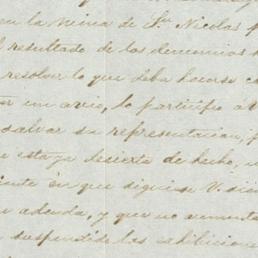 en la mina de Sn. Nicolas p
l resultado de los denuncios
resolver lo que deba hacerse c
por un avio, lo participo á V
salvar su representacion, p
e esta ya desierta de hecho,
ente en que siguiese V. sien
adeuda, y que no aumente
suspendido las exhibicione